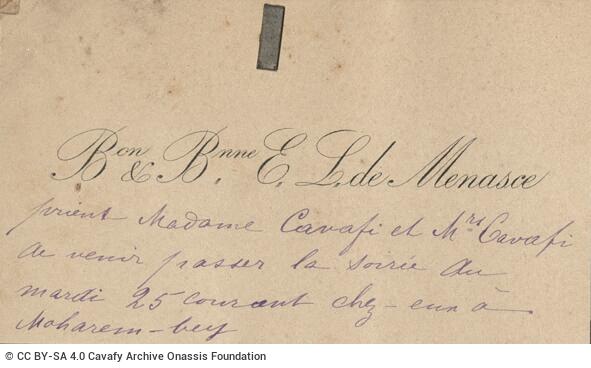 Bon & Bnne E. L. de Menasce
prient Madame Cavafi et Mrs Cavafi
de venir passer la soirée du
mardi 25 courant chez-eux à
Moharem-bey
© CC BY-SA 4.0 Cavafy Archive Onassis Foundation